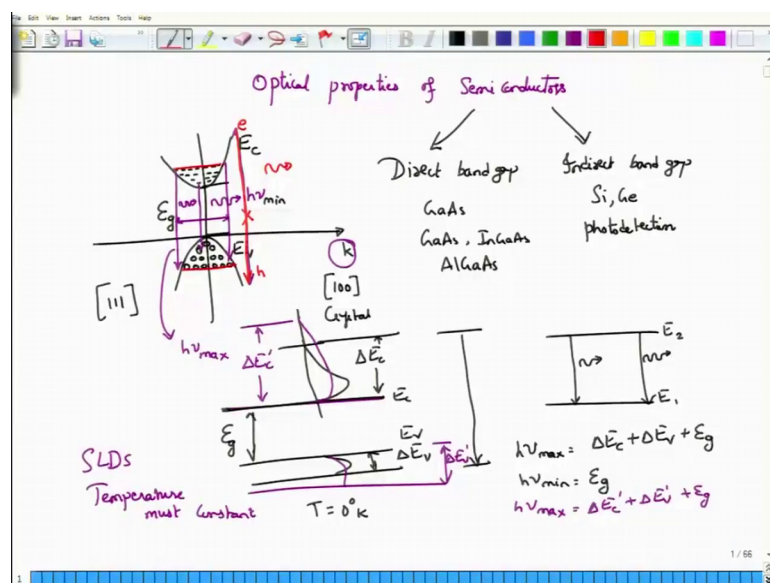 File Edit View Insert Actions Tools Help
Optical properties of Semiconductors
Direct bandgap
GaAs
GaAs, InGaAs
AlGaAs
Indirect bandgap
Si, Ge
photodetection
e
Ec
hνmin
Eg
E
k
h
[111]
[100]
Crystal
hνmax
ΔEc'
ΔEc
Ec
Eg
Ev
ΔEv
ΔEv'
T = 0°k
E2
E1
hνmax = ΔEc + ΔEv + Eg
hνmin = Eg
hνmax = ΔEc' + ΔEv' + Eg
SLDs
Temperature
must constant
1 / 66
1